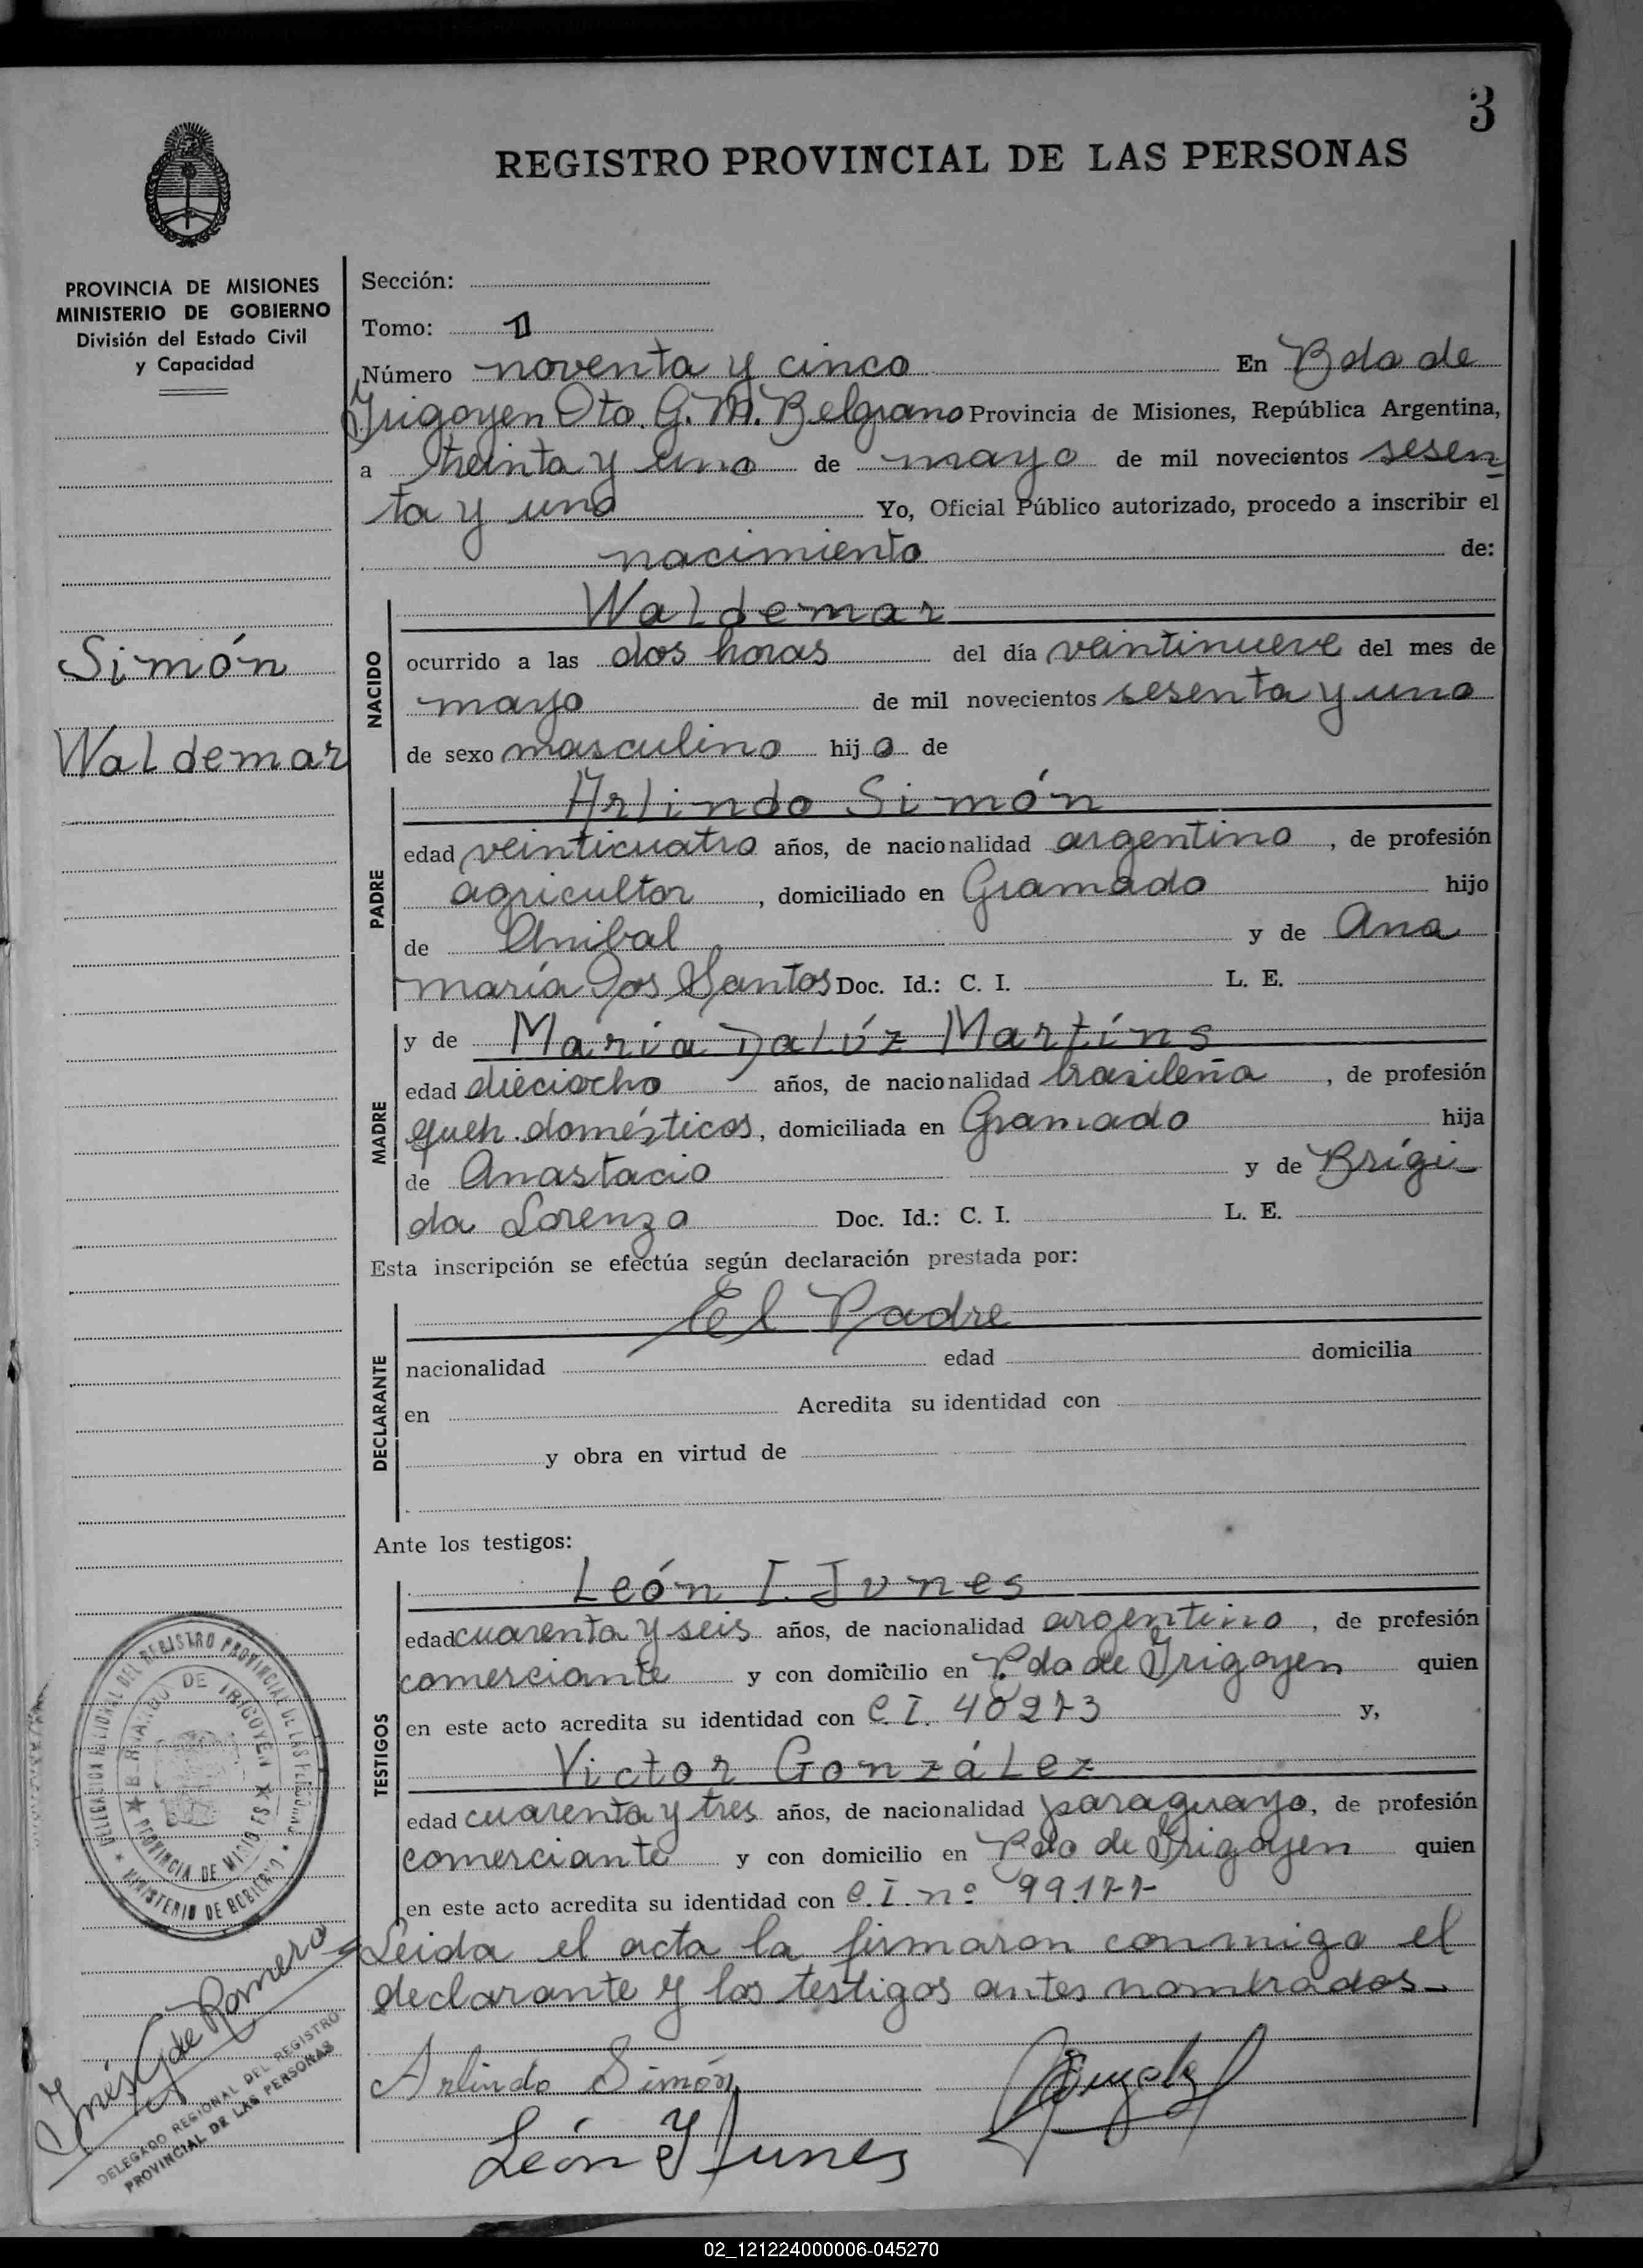 3
REGISTRO PROVINCIAL DE LAS PERSONAS
PROVINCIA DE MISIONES
MINISTERIO DE GOBIERNO
División del Estado Civil
y Capacidad
Simón
Waldemar
Sección:
Tomo: 1
Número noventa y cinco En Bdo de
Irigoyen Dto. G. M. Belgrano Provincia de Misiones, República Argentina,
a treinta y uno de mayo de mil novecientos sesen
ta y uno Yo, Oficial Público autorizado, procedo a inscribir el
nacimiento de:
NACIDO
Waldemar
ocurrido a las dos horas del día veintinueve del mes de
mayo de mil novecientos sesenta y uno
de sexo masculino hijo de
PADRE
Arlindo Simón
edad veinticuatro años, de nacionalidad argentino, de profesión
agricultor, domiciliado en Gramado hijo
de Anibal y de Ana
maría Dos Santos Doc. Id.: C. I. L. E.
MADRE
y de María Dalúz Martíns
edad dieciocho años, de nacionalidad brasileña, de profesión
queh. domésticos, domiciliada en Gramado hija
de Anastacio y de Brígi
da Lorenzo Doc. Id.: C. I. L. E.
Esta inscripción se efectúa según declaración prestada por:
DECLARANTE
El Padre
nacionalidad edad domicilia
en Acredita su identidad con
y obra en virtud de
Ante los testigos:
TESTIGOS
León I. Junes
edad cuarenta y seis años, de nacionalidad argentino, de profesión
comerciante y con domicilio en Bdo de Irigoyen quien
en este acto acredita su identidad con C. I. 40273 y,
Victor González
edad cuarenta y tres años, de nacionalidad paraguayo, de profesión
comerciante y con domicilio en Bdo de Irigoyen quien
en este acto acredita su identidad con C. I. nº 99.177
Leida el acta la firmaron conmigo el
declarante y los testigos antes nombrados.
Arlindo Simón
León Y Junes
DELEGACION REGIONAL DEL REGISTRO PROVINCIAL DE LAS PERSONAS
MINISTERIO DE GOBIERNO
BERNARDO DE IRIGOYEN
PROVINCIA DE MISIONES
Inés G de Romero
DELEGADO REGIONAL DEL REGISTRO
PROVINCIAL DE LAS PERSONAS
02_121224000006-045270